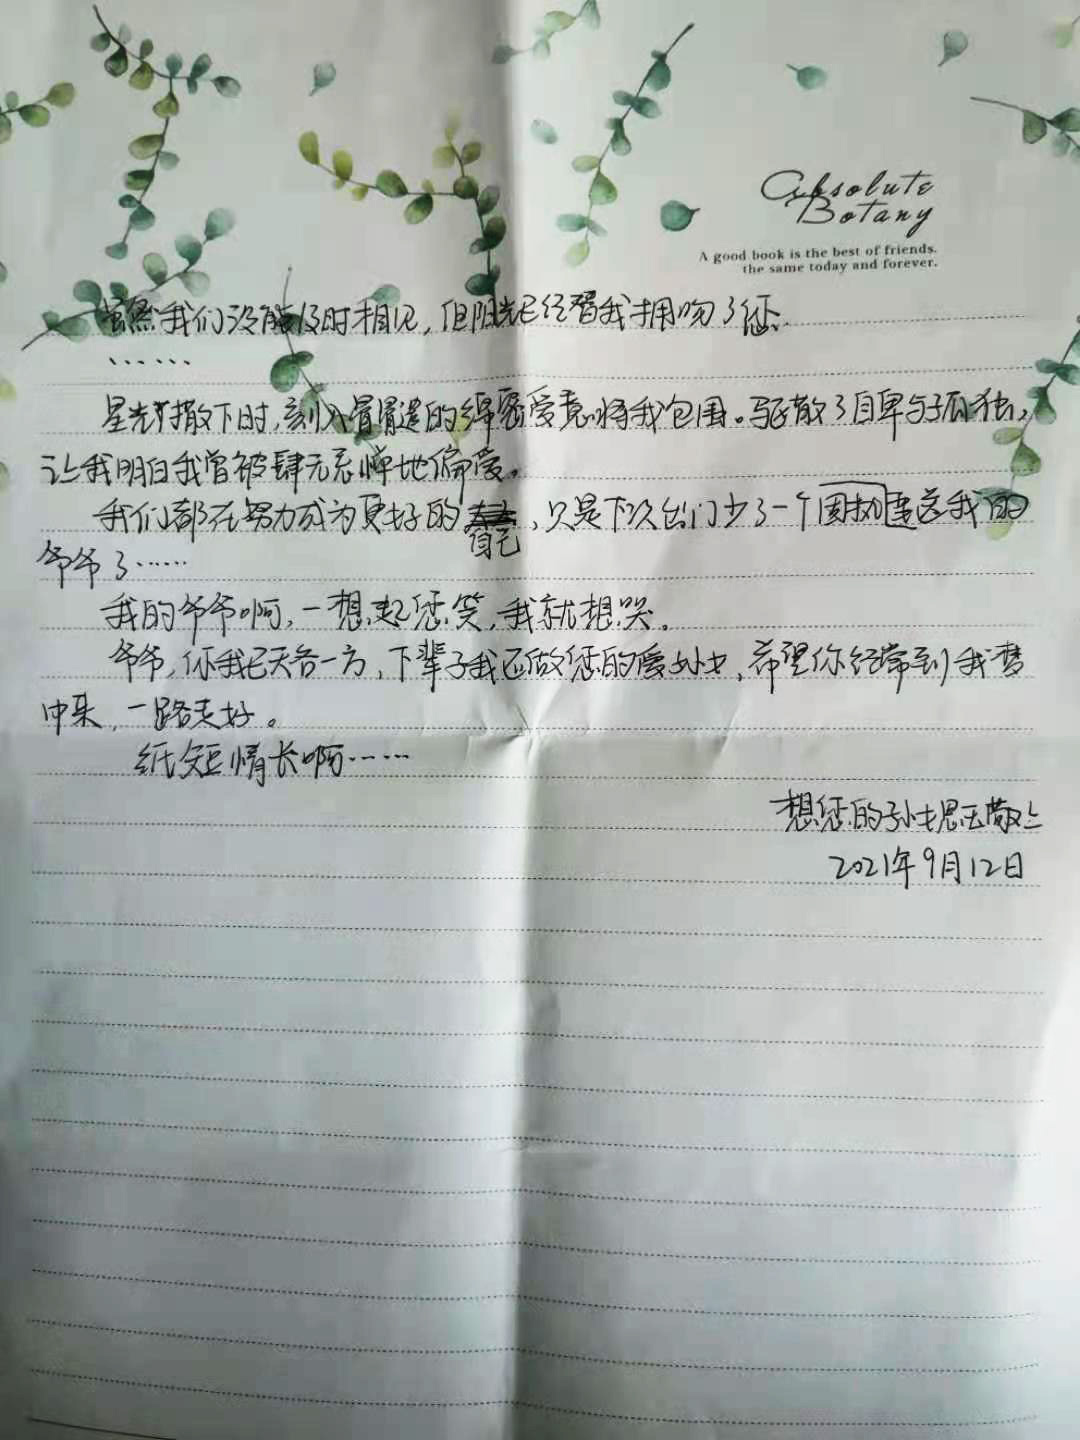 Absolute
Botany
A good book is the best of friends.
the same today and forever.
虽然我们没能及时相见，但阳光已经替我拥吻了您、
、……
星光撒下时，刻入骨髓的绵密爱意将我包围。驱散了自卑与孤独，
让我明白我曾被肆无忌惮地偏爱。
我们都在努力成为更好的自己，只是下次出门少了一个固执送我的
爷爷了……
我的爷爷啊，一想起您笑，我就想哭。
爷爷，你我已天各一方，下辈子我还做您的爱孙女，希望你经常到我梦
中来，一路走好。
纸短情长啊……
想您的孙女思玉敬上
2021年9月12日